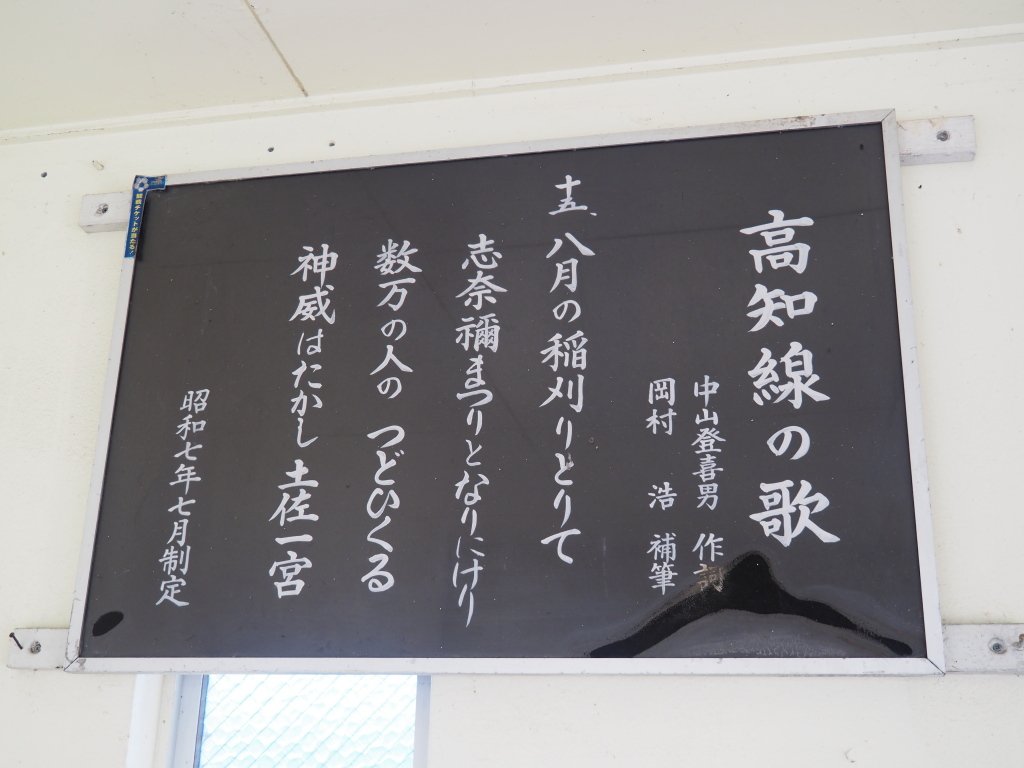 高知線の歌
中山登喜男 作詞
岡村 浩 補筆
十五、八月の稲刈りとりて
志奈禰まつりとなりにけり
数万の人の つどひくる
神威はたかし土佐一宮
昭和七年七月制定